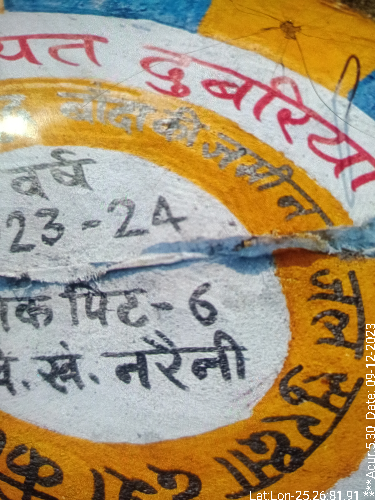 यत दुबरिया
बाँदा की जमीन
जल सुरक्षा
वर्ष
23-24
पिट-6
खं. नरैनी
Lat Lon-25.26 81.91
***Acur:5.30 Date: 09-12-2023